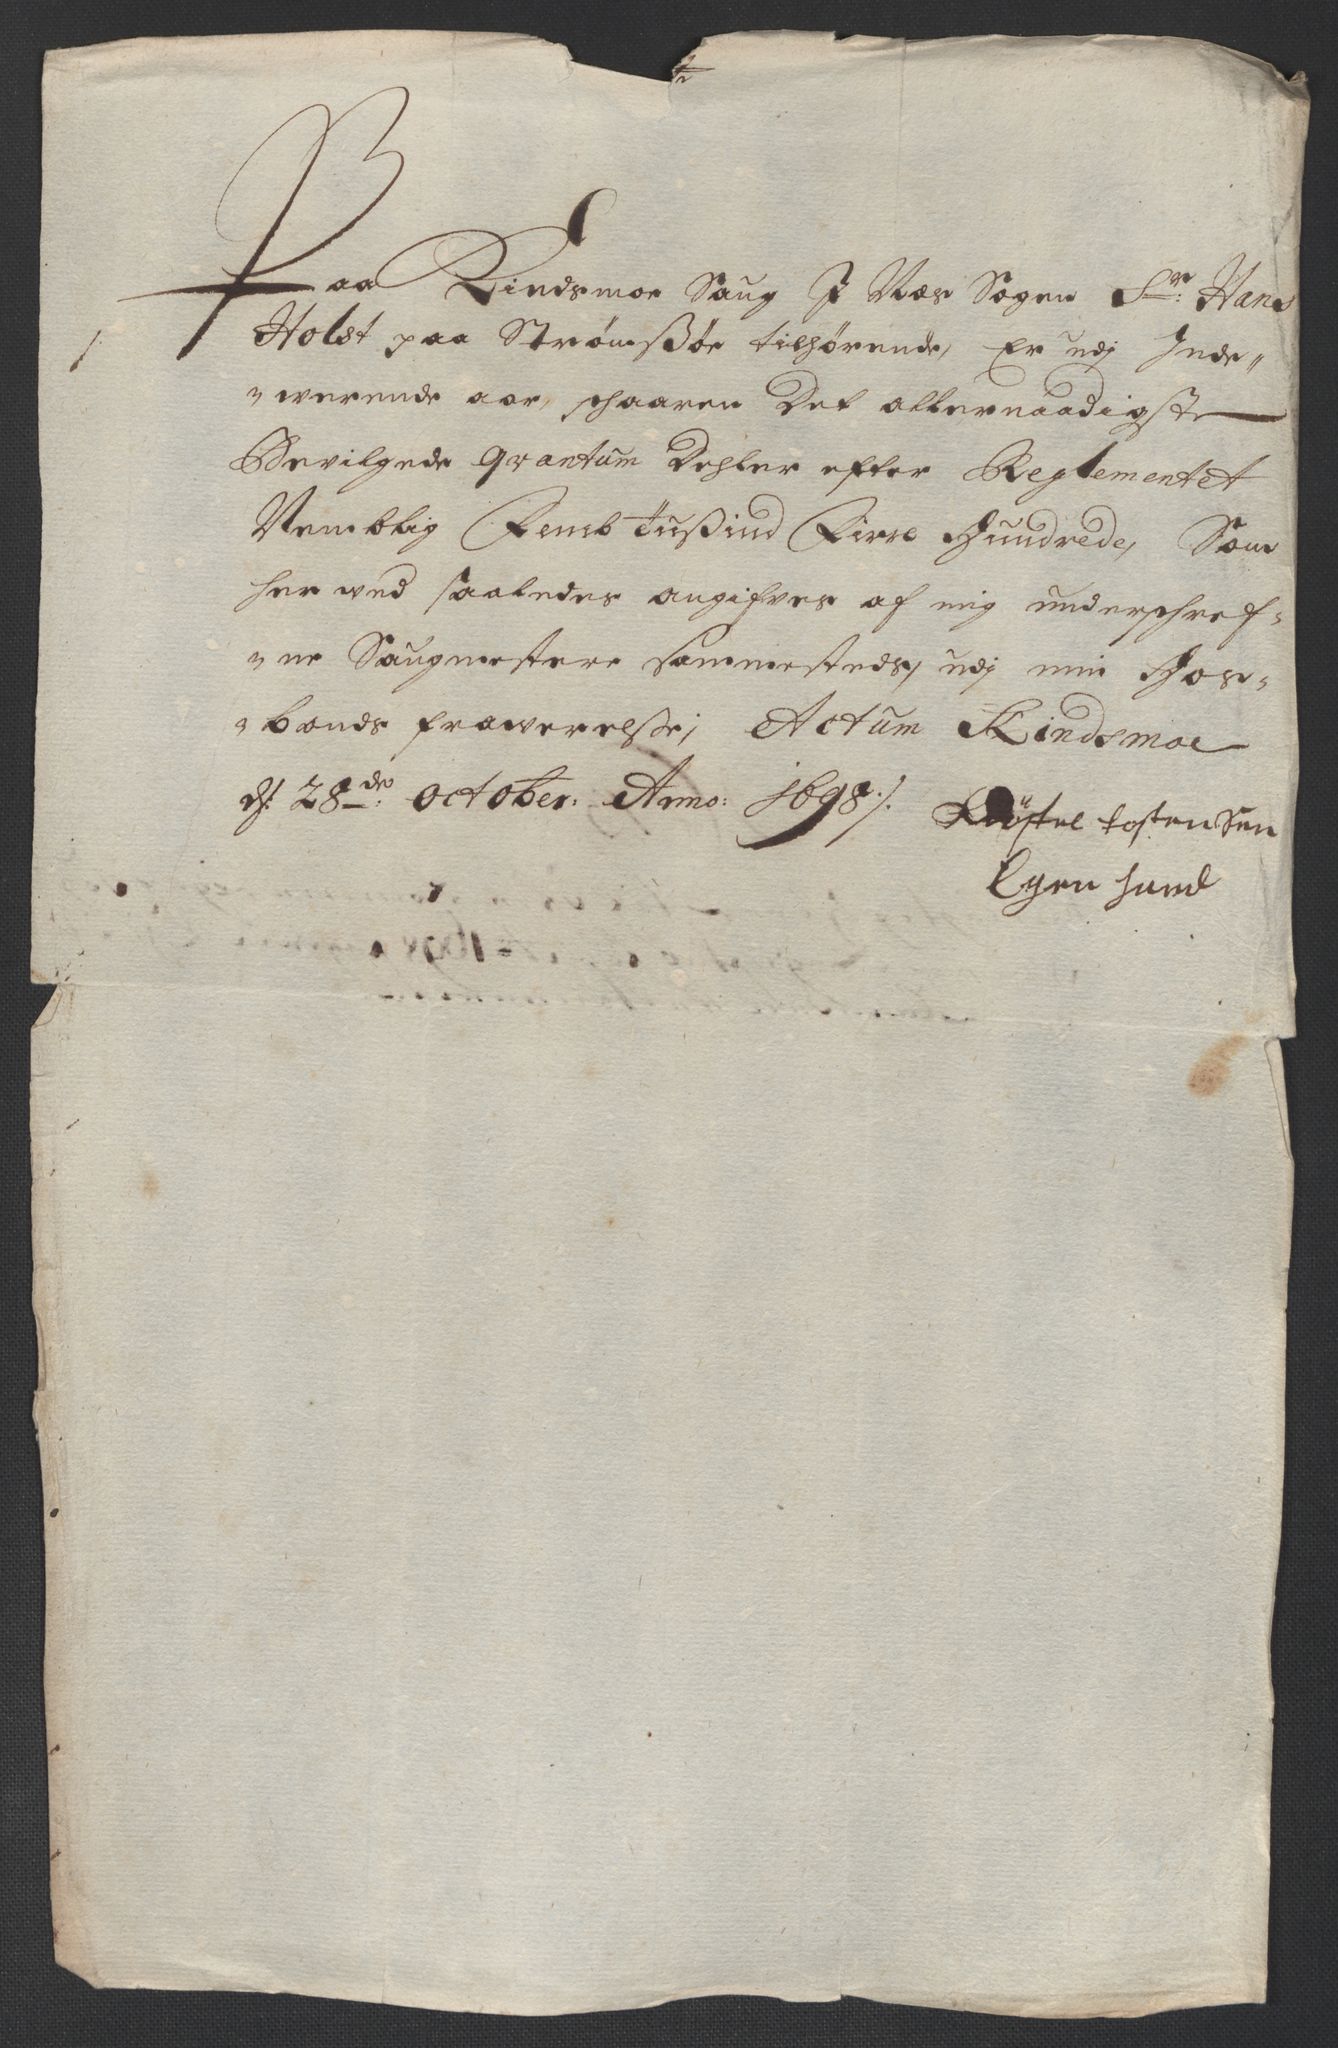 Paa Kindsmoe Saug J Næs Sogen Sr: Hans
1. Holst paa Strømssøe tilhørende, Er udj Inde-
-werende aar, schaaren Det allernaadigste
Bevilgede qvantum Dehler efter Reglementet
Nemblig Femb Tussind Firre Hundrede, Som
her wed saaledes angifves af mig underschref-
-ne Saugmestere sammesteds, udj min Hos-
-bonds frawerelsse; Actum Kindsmoe
d: 28de: October: Anno: 1698 ·/.
Kiøstel tostensen
Egen hand